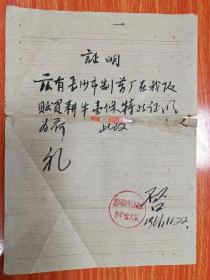 証明
兹有长沙市制药厂在我队
购買耕牛壹条特此证明
为荷 此致
礼
1961.11.22.